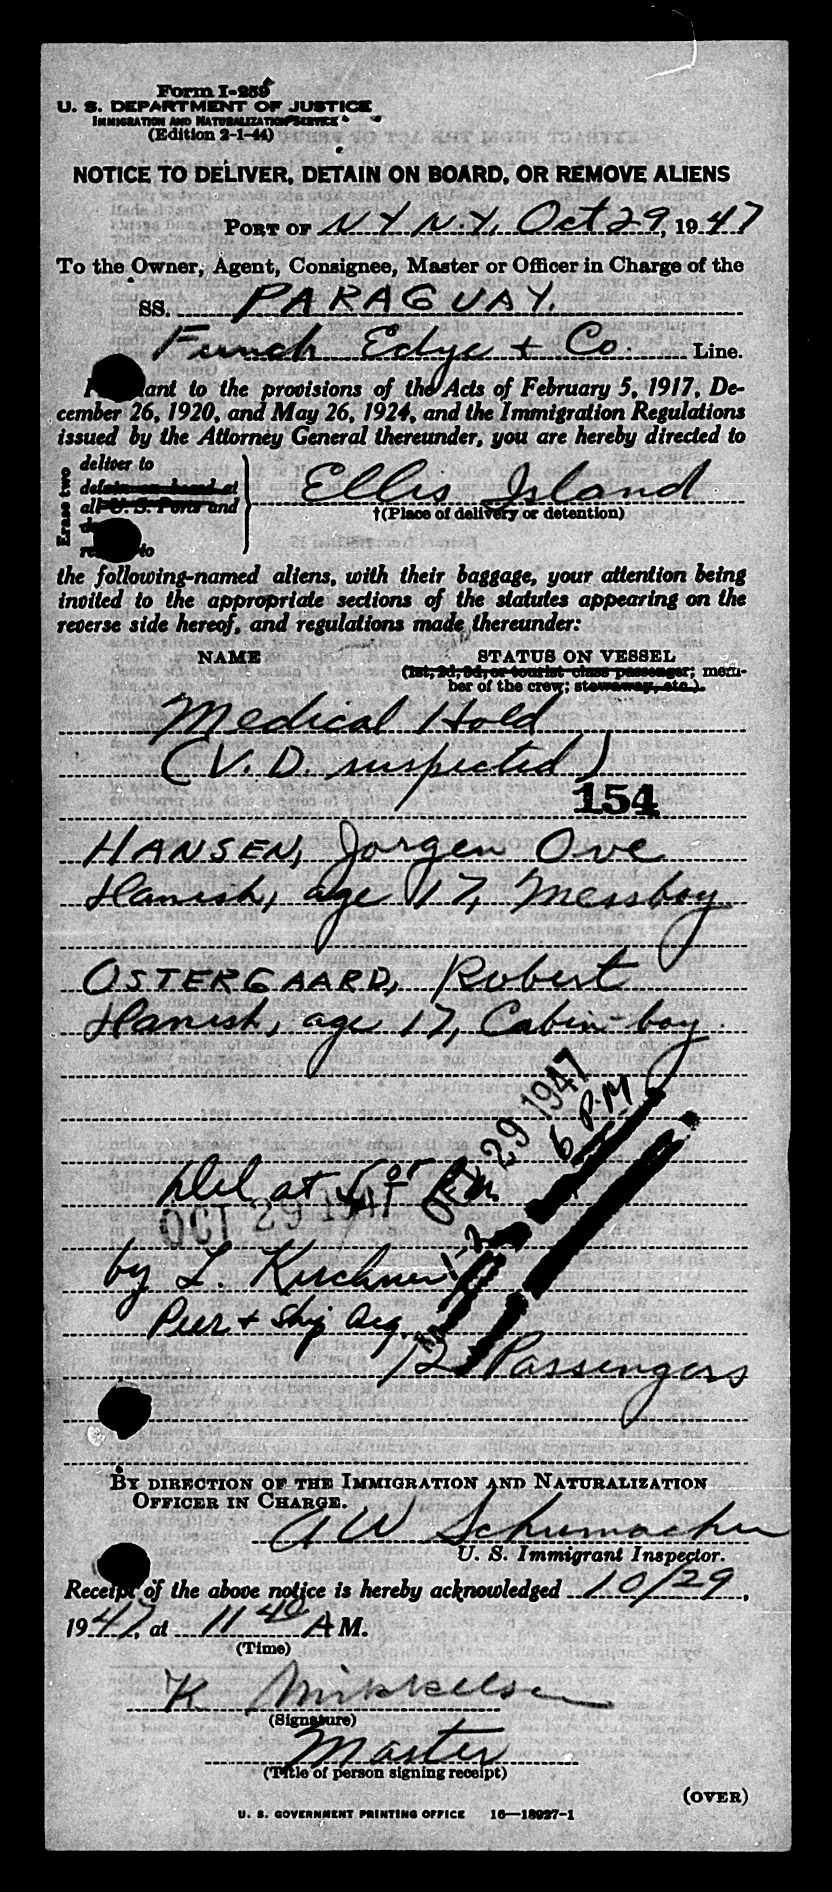 Form I-259
U. S. DEPARTMENT OF JUSTICE
IMMIGRATION AND NATURALIZATION SERVICE
(Edition 2-1-44)
NOTICE TO DELIVER, DETAIN ON BOARD, OR REMOVE ALIENS
PORT OF N Y N.Y. Oct 29, 1947
To the Owner, Agent, Consignee, Master or Officer in Charge of the
SS. PARAGUAY.
Funch Edye + Co. Line.
ant to the provisions of the Acts of February 5, 1917, De-
cember 26, 1920, and May 26, 1924, and the Immigration Regulations
issued by the Attorney General thereunder, you are hereby directed to
Erase two
deliver to
detain on board at
all U. S. Ports and
to
Ellis Island
†(Place of delivery or detention)
the following-named aliens, with their baggage, your attention being
invited to the appropriate sections of the statutes appearing on the
reverse side hereof, and regulations made thereunder:
NAME STATUS ON VESSEL
(1st, 2d, 3d, or tourist class passenger; mem-
ber of the crew; stowaway, etc.).
Medical Hold
(V. D. suspected)
154
HANSEN, Jorgen Ove
Danish, age 17, Messboy
OSTERGAARD, Robert
Danish, age 17, Cabin-boy.
OCT 29 1947
6 PM
Del at
OCT 29 1947
by L. Kirchner
Pier + Ship
12 Passengers
BY DIRECTION OF THE IMMIGRATION AND NATURALIZATION
OFFICER IN CHARGE.
A W Schumacher
U. S. Immigrant Inspector.
Receipt of the above notice is hereby acknowledged 10/29,
1947, at 11 40 A M.
(Time)
K Mikkelsen
(Signature)
Master
(Title of person signing receipt)
(OVER)
U. S. GOVERNMENT PRINTING OFFICE 16—18927-1